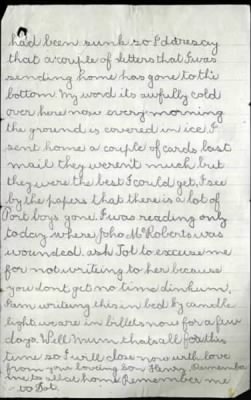 had been sunk so I daresay
that a couple of letters that I was
sending home has gone to the
bottom My word its awfully cold
over here now every morning
the ground is covered in ice. I
sent home a couple of cards last
mail they werent much but
they were the best I could get, I see
by the papers that there is a lot of
Port boys gone. I was reading only
today where John McRoberts was
wounded. ask Tot to excuse me
for not writing to her because
you dont get no time dinkum.
I am writing this in bed by candle
light we are in billets now for a few
days. Well Mum thats all for this
time so I will close now with love
from your loving son Henry. Remember
me to all at home Remember me
to Dot.